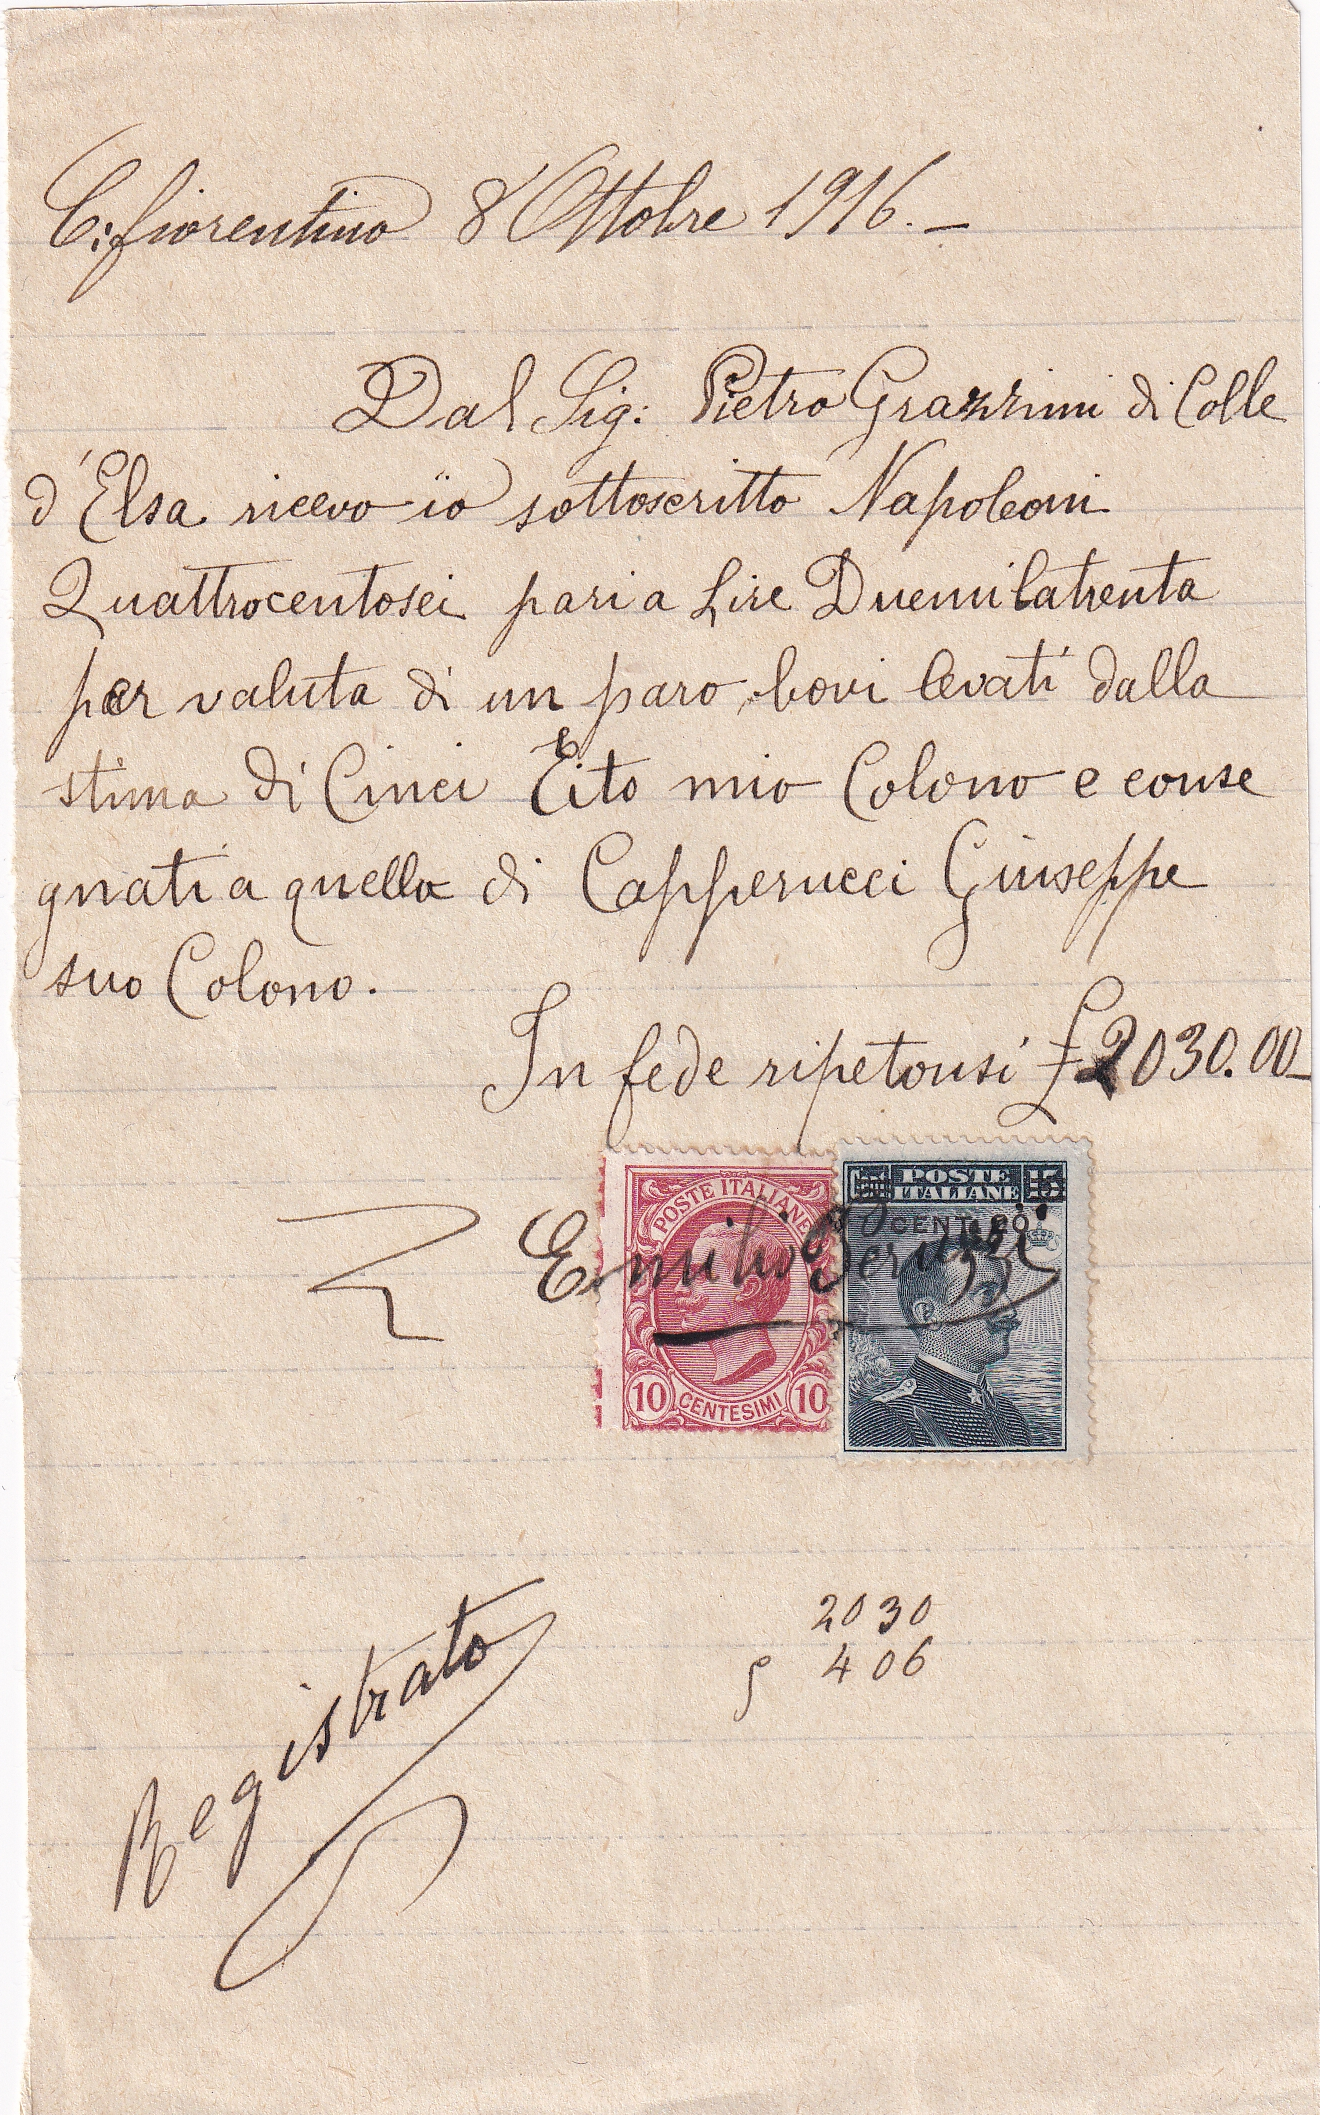 C: fiorentino 8 Ottobre 1916.–
Dal Sig: Pietro Grazzini di Colle
d'Elsa ricevo io sottoscritto Napoleoni
Quattrocentosei pari a Lire Duemilatrenta
per valuta di un paro bovi levati dalla
stima di Cinci Tito mio Colono e conse
gnati a quella di Capperucci Giuseppe
suo Colono.
In fede ripetonsi £ 2030.00
POSTE ITALIANE
POSTE ITALIANE 15
CENT. 20
Emilio Peruzzi
10 CENTESIMI 10
2030
406
Registrato